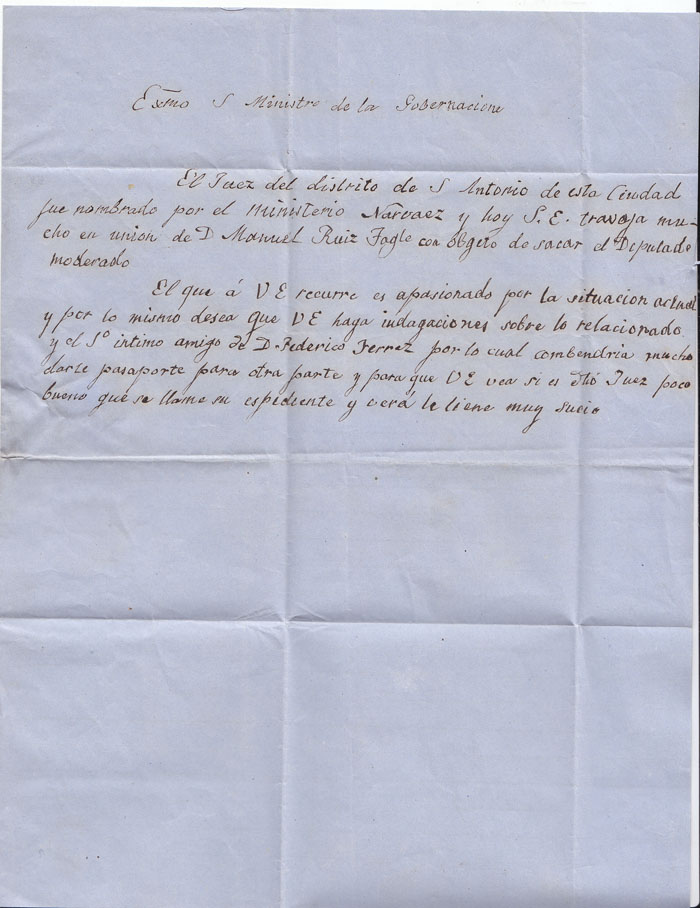 Exmo S Ministro de la Gobernacione
El Juez del distrito de S Antonio de esta Ciudad
fue nombrado por el ministerio Narvaez y hoy S. E. travaja mu-
cho en union de D Manuel Ruiz Tagle con obgeto de sacar el Deputado
moderado
El que á V E recurre es apasionado por la situacion actual
y por lo mismo desea que V E haga indagaciones sobre lo relacionado
y el Sº intimo amigo de D. Federico Ferrez por lo cual combendria mucho
darle pasaporte para otra parte y para que V E vea si es dhó Juez poco
bueno que se llame su espidiente y verá le tiene muy sucio